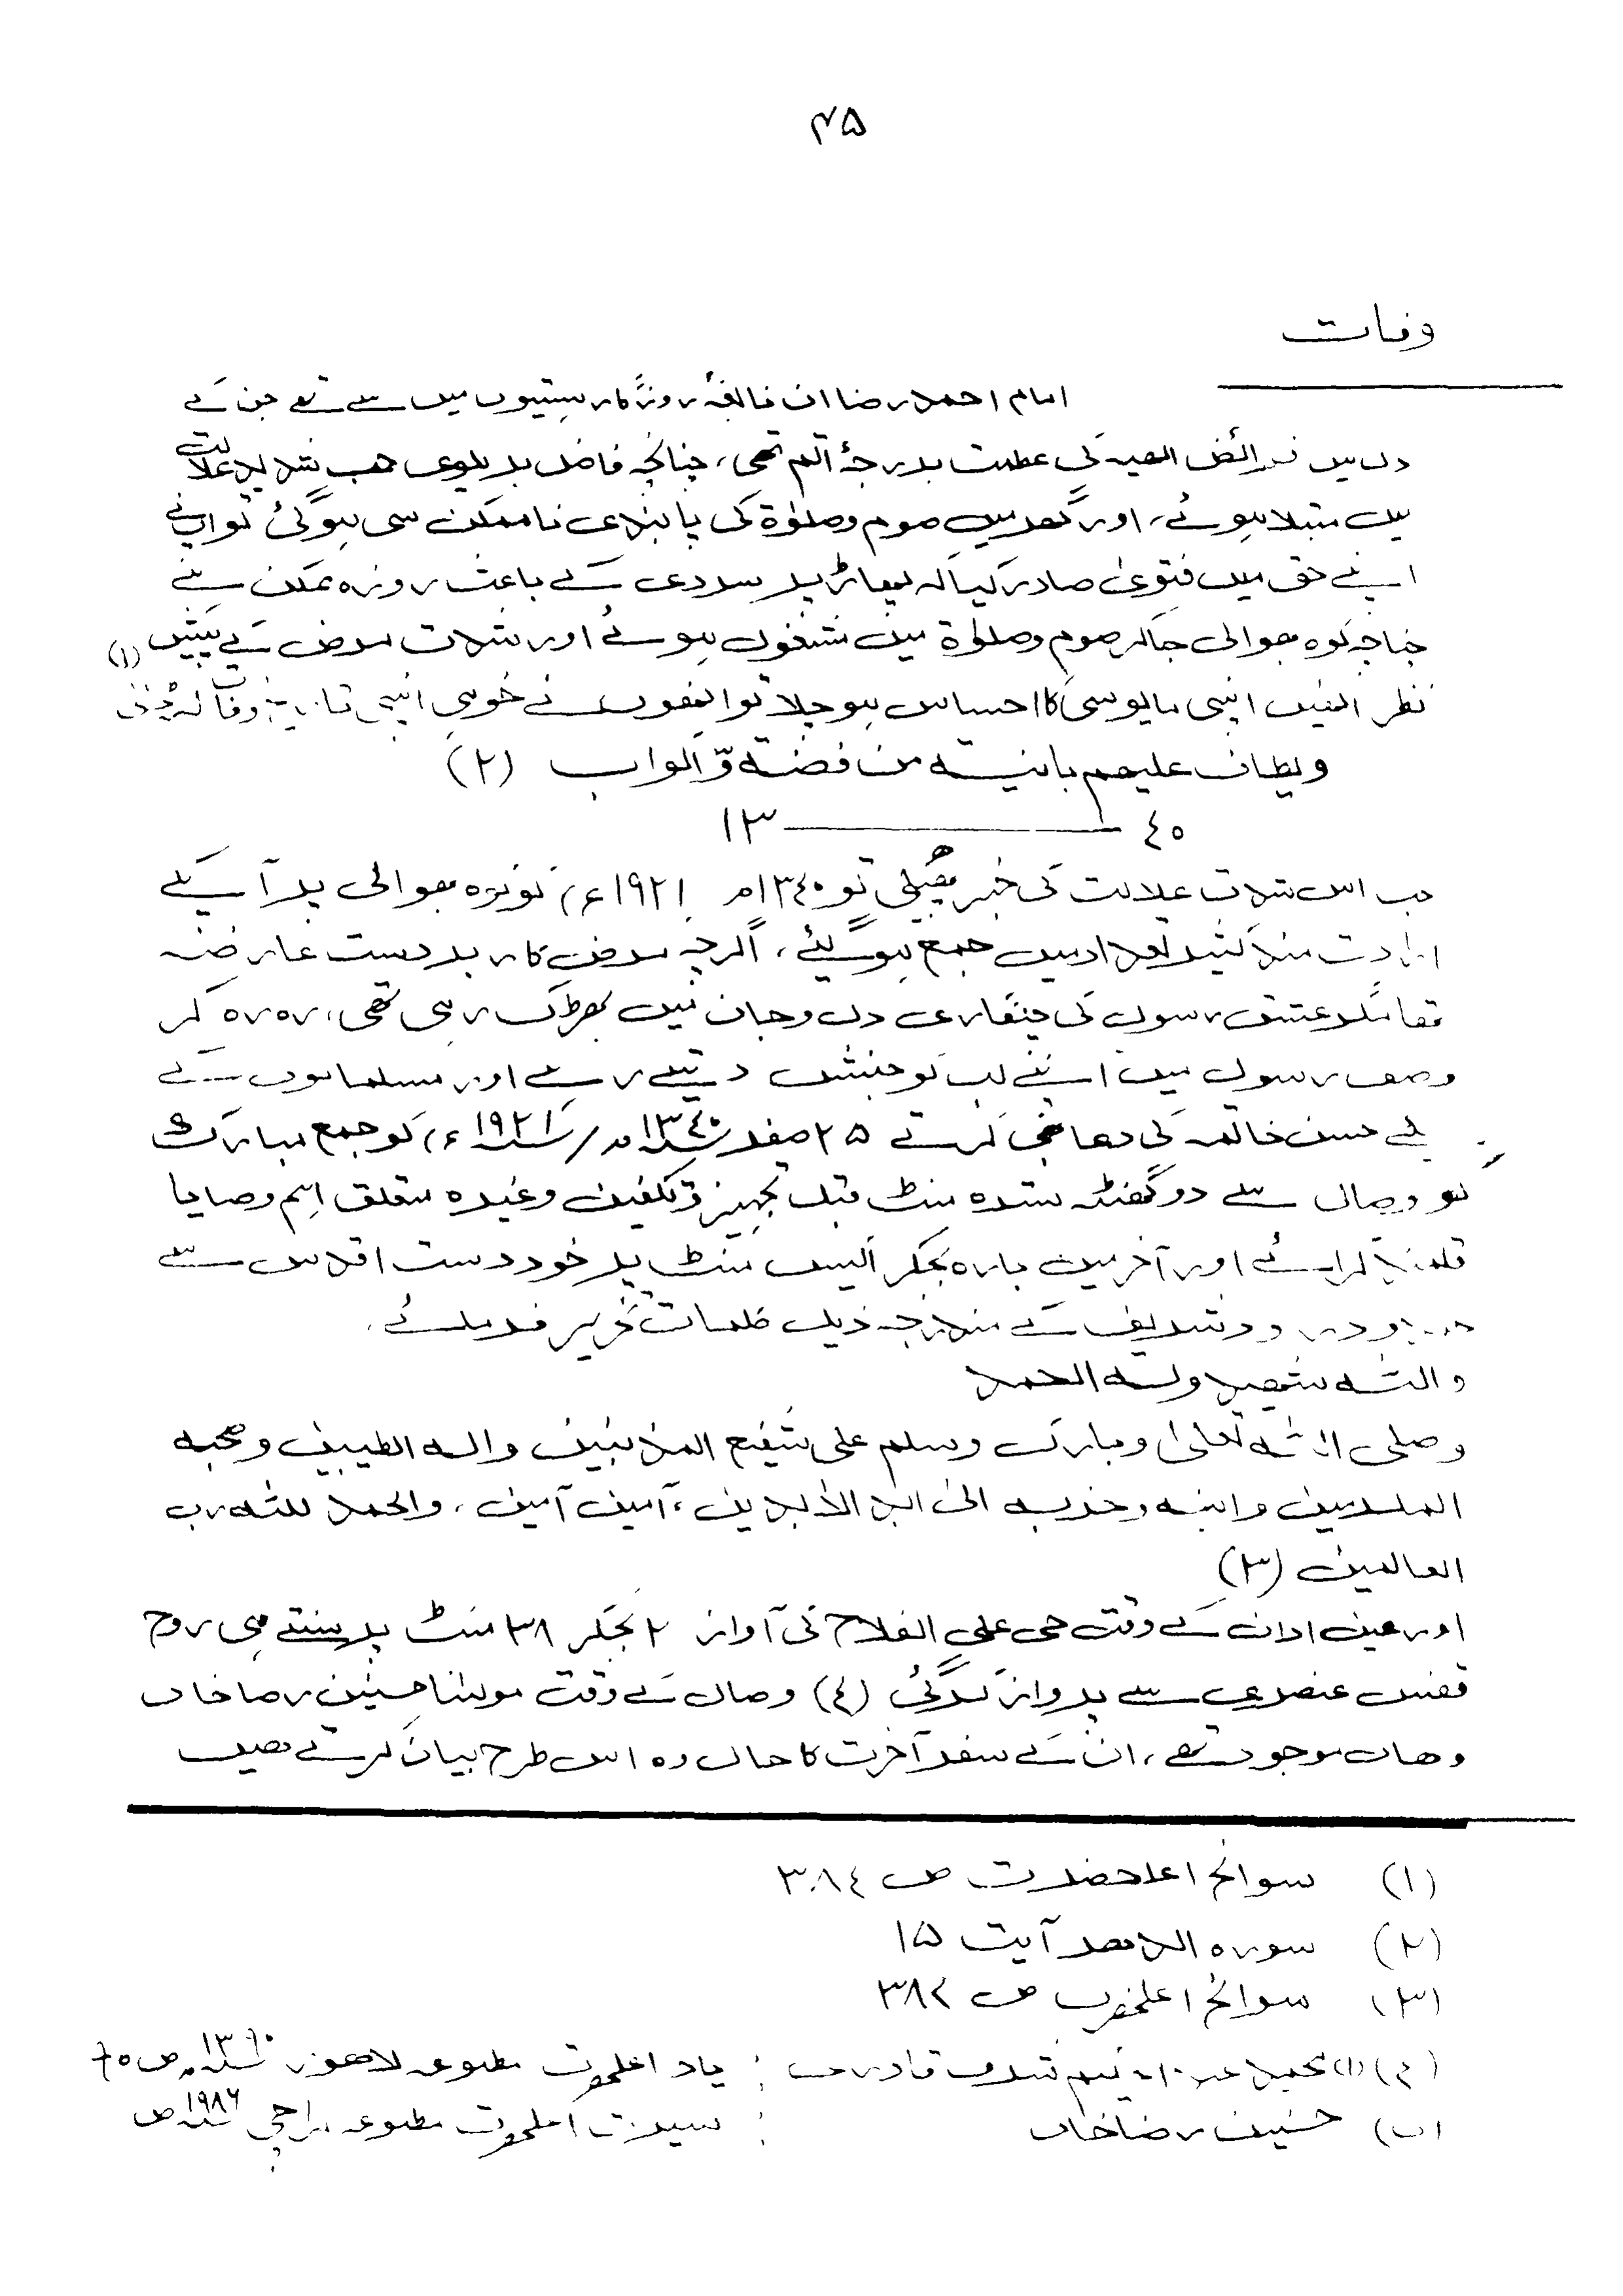 ۴۵
وفات
امام احمد رضا ان نابغۂ روزگار ہستیوں میں سے تھے جن کے
دل میں فرائض الٰہیہ کی عظمت بدرجۂ اتم تھی، چنانچہ فاضل بریلوی جب شدید علالت
میں مبتلا ہوئے، اور گھر میں صوم وصلوٰۃ کی پابندی ناممکن سی ہوگئی تو اپنے
اپنے حق میں فتویٰ صادر کیا کہ پہاڑ پر سردی کے باعث روزہ ممکن ہے
چناچہ کوہ بھوالی جاکر صوم وصلوٰۃ میں مشغول ہوئے اور شدت مرض کے پیش (۱)
نظر انھیں اپنی مایوسی کا احساس ہو چلا تو انھوں نے خود ہی اپنی تاریخ وفات
ویطاف علیھم بانیۃ من فضۃ وّاکواب (۲)
۱۳ ــــــــ ٤٠
جب اس شدت علالت کی خبر پھیلی تو ۱۳٤۰ھ ۱۹۲۱ء، تو کوہ بھوالی پر آپ کے
ارادت مند کثیر تعداد میں جمع ہوگئے، اگرچہ مرض کا زبردست عارضہ
تھا مگر عشق رسول کی چنگاری دل وجان میں بھڑک رہی تھی، رہ رہ کر
وصف رسول میں اپنے لب کو جنبش دیتے رہے اور مسلمانوں کے
لیے حسن خاتمہ کی دعا بھی کرتے ۲۵ صفر ۱۳٤۰ھ / ۱۹۲۱ء، کو جمع مبارک
کو وصال سے دو گھنٹہ سترہ منٹ قبل تجہیز و تکفین وغیرہ متعلق اہم وصایا
قلمبند کرائے اور آخر میں بارہ بجکر اکیس منٹ پر خود دست اقدس سے
حمد و درود شریف کے مندرجہ ذیل کلمات تحریر فرمائے۔
واللہ شھید ولہ الحمد
وصلی اللہ تعالیٰ وبارک وسلم علی شفیع المذنبین والہ الطیبین وصحبہ
المکرمین وابنہ وحزبہ الیٰ ابد الاٰبدین، آمین آمین، والحمد للہ رب
العالمین (۳)
اور عین اذان کے وقت حی علی الفلاح کی آواز ۲ بجکر ۳۸ منٹ پر سنتے ہی روح
قفس عنصری سے پرواز کرگئی (٤) وصال کے وقت مولٰنا حسنین رضا خاں
وھاں موجود تھے، ان کے سفر آخرت کا حال وہ اس طرح بیان کرتے ھیں
(۱) سوانح اعلحضرت ص ۳۸٤
(۲) سورہ الدھر آیت ۱۵
(۳) سوانح اعلحضرت ص ۳۸۲
(۴) (۱) شرف قادری : یاد اعلحضرت مطبوعہ لاھور ص
(ب) حسنین رضا خاں : سیرت اعلحضرت مطبوعہ کراچی ۱۹۸۶ ص